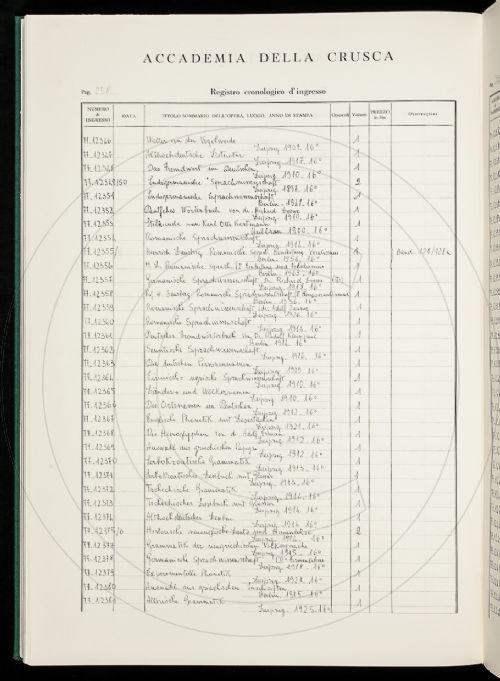 ACCADEMIA DELLA CRUSCA
Pag. 258
Registro cronologico d'ingresso
NUMERO di INGRESSO DATA TITOLO SOMMARIO DELL'OPERA, LUOGO, ANNO DI STAMPA Opuscoli Volumi PREZZO in lire Osservazioni
77.12346 Walter von der Vogelweide 1
Leipzig 1909. 16°
77.12347 Althochdeutsche Literatur 1
Leipzig 1917. 16°
77.12348 Das Fremdwort im Deutschen 1
Leipzig 1910. 16°
77.12349/50 Indogermanische Sprachwissenschaft 2
Leipzig 16°
77.12351 Indogermanische Sprachwissenschaft 1
Berlin 16°
77.12352 Deutsches Wörterbuch von dr. Richard Loewe 1
Leipzig. 1910. 16°
77.12353 Stilkunde von Karl Otto Hartmann 1
1900. 16°
77.12354 Romanische Sprachwissenschaft 1
Leipzig 16°
77.12355 Heinrich Lausberg Romanische Sprach. Vocalismus 1 Band 128/128a
Berlin. 1956. 16°
77.12356 H. L. Romanische Sprach. 1
Berlin. 16°
77.12357 Germanische Sprachwissenschaft Dr. Richard Loewe 1
Leipzig 1918. 16°
77.12358 Lausberg Romanische Sprachwissenschaft II Konsonantismus 1
Berlin 1956. 16°
77.12359 Romanische Sprachwissenschaft Adolf 1
Leipzig 16°
77.12360 Romanische Sprachwissenschaft 1
Leipzig 1916. 16°
77.12361 Deutsches Fremdwörterbuch von Dr. Rudolf Kleinpaul 1
Berlin 16°
77.12362 Semitische Sprachwissenschaft 1
Leipzig 1916. 16°
77.12363 Die deutschen Personennamen 1
Leipzig 16°
77.12364 Finnisch-ugrische Sprachwissenschaft 1
Leipzig 1910. 16°
77.12365 Länder- und Völkernamen 1
Leipzig 1910. 16°
77.12366 Die Ortsnamen im Deutschen 1
Leipzig 1912. 16°
77.12367 Englische Phonetik mit Lesestücken 1
Leipzig 1921. 16°
77.12368 Die Hieroglyphen von d. Adolf Erman 1
Leipzig 1912. 16°
77.12369 Auswahl aus griechischen Papyri 1
Leipzig 1912. 16°
77.12370 Serbokroatische Grammatik 1
Leipzig 1913. 16°
77.12371 Serbokroatisches Lesebuch mit Glossar 1
Leipzig 1913. 16°
77.12372 Tschechische Grammatik 1
Leipzig 1914. 16°
77.12373 Tschechisches Lesebuch mit Glossar 1
Leipzig 1914. 16°
77.12374 Althochdeutsches 1
Leipzig 1914. 16°
77.12375/6 Historische neuenglische Laut- und Formenlehre 2
Leipzig 1916. 16°
77.12377 Grammatik der neugriechischen Volkssprache 1
Leipzig 1915. 16°
77.12378 Germanische Sprachwissenschaft II° Formenlehre 1
Leipzig 1918. 16°
77.12379 Experimentelle Phonetik 1
Leipzig 1921. 16°
77.12380 Auswahl aus griechischen Inschriften 1
Berlin. 1915. 16°
77.12381 Altirische Grammatik 1
Leipzig. 1925. 16°